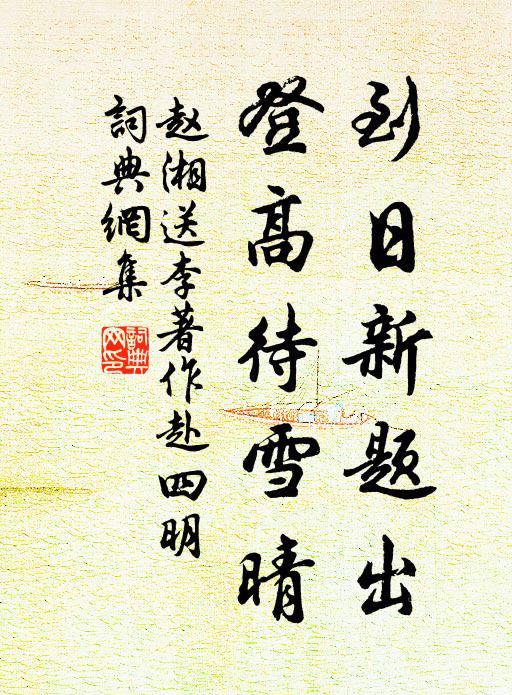 到日新题出
登高待雪晴
赵湘送李著作赴四明
詞典網集
詞典网印